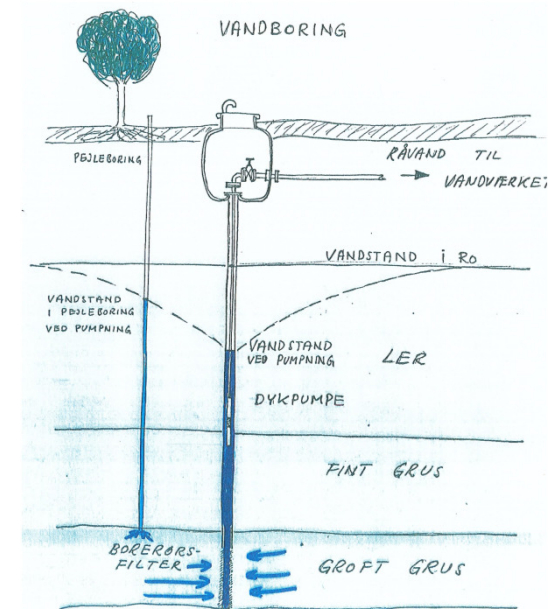 VANDBORING
PEJLEBORING
RÅVAND TIL
VANDVÆRKET
VANDSTAND I RO
VANDSTAND
I PEJLEBORING
VED PUMPNING
VANDSTAND
VED PUMPNING
LER
DYKPUMPE
FINT GRUS
BORERØRS-
FILTER
GROFT GRUS